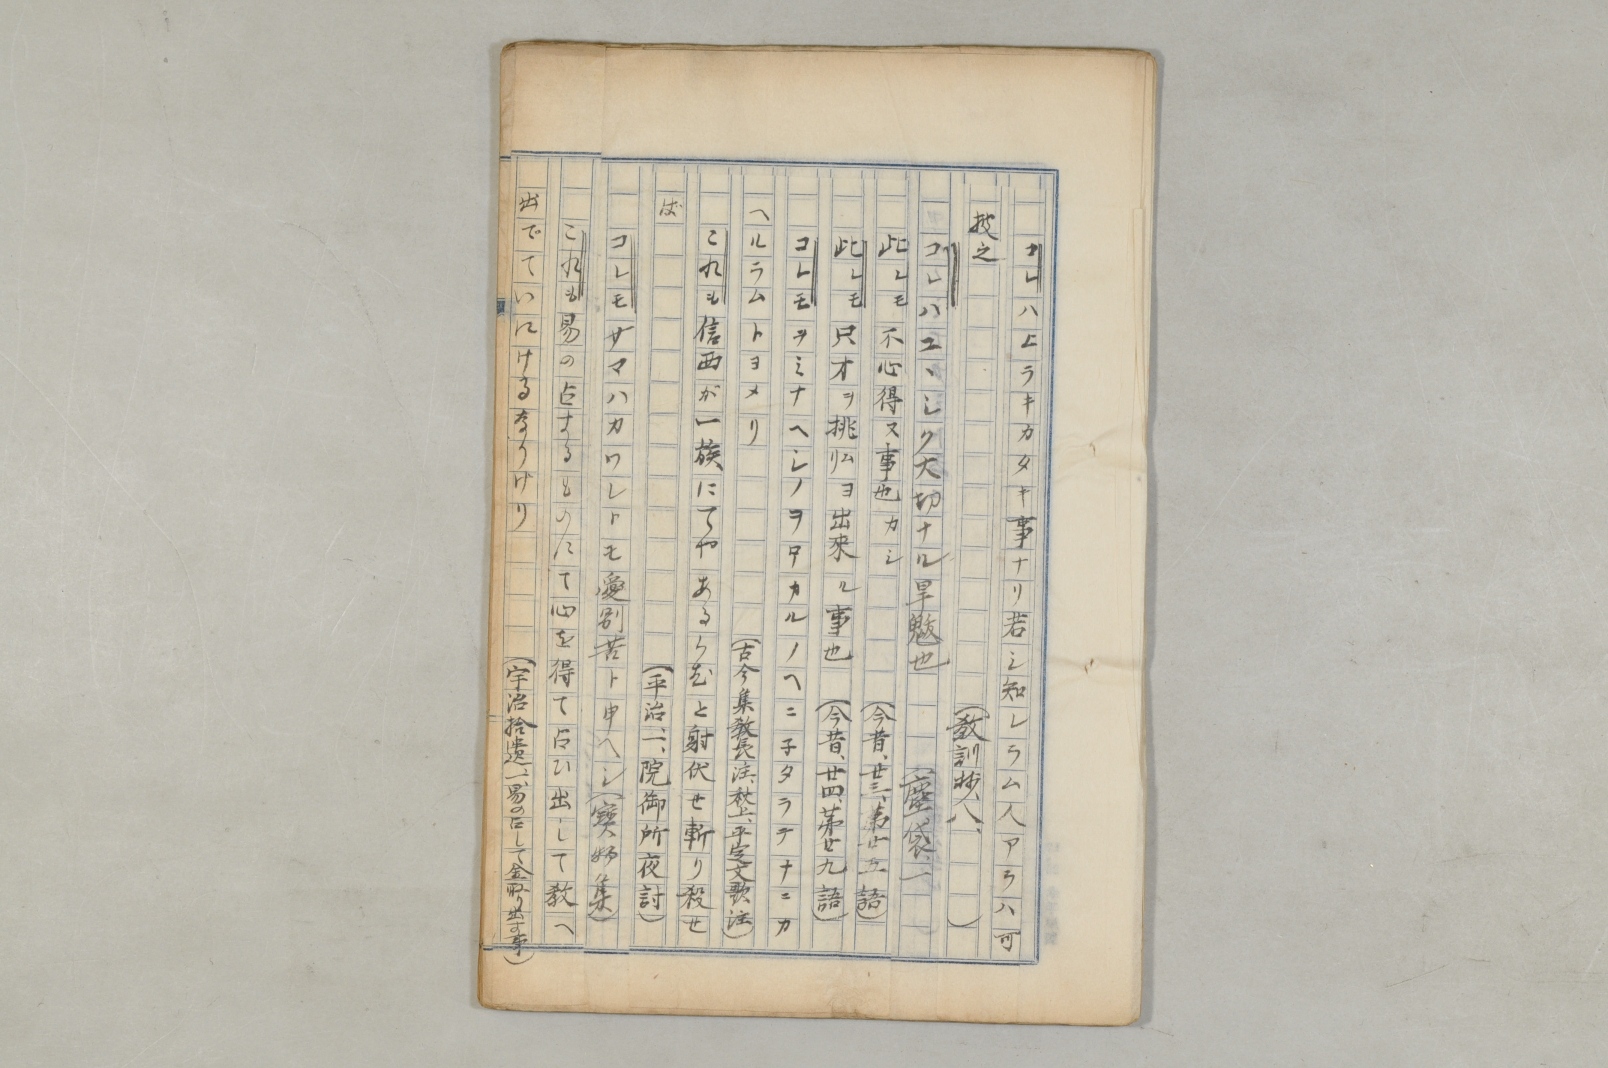 コレハ上ラキカタキ事ナリ若シ知レラム人アラハ可
授之
(教訓抄八、)
コレハエヽシク大切ナル旱魃也
(塵袋一
此レモ不心得ヌ事也カシ
(今昔、廿三、第廿五語)
此レモ只才ヲ挑リムヨ出来ル事也
(今昔、廿四、第廿九語)
コレモヲミナヘシノヲヲカルノヘニ子タラテナニカ
ヘルラムトヨメリ
(古今集教長注、秋上、平定文歌注)
これも信西が一族にてやあるらむと射伏せ斬り殺せ
ば
(平治一、院御所夜討)
コレモサマハカワレトモ愛別苦ト申ヘシ(宝物集)
これも易の占するものにて心を得て占ひ出して教へ
出でていにけるなりけり
(宇治拾遺一、易の占して金取り出す事)